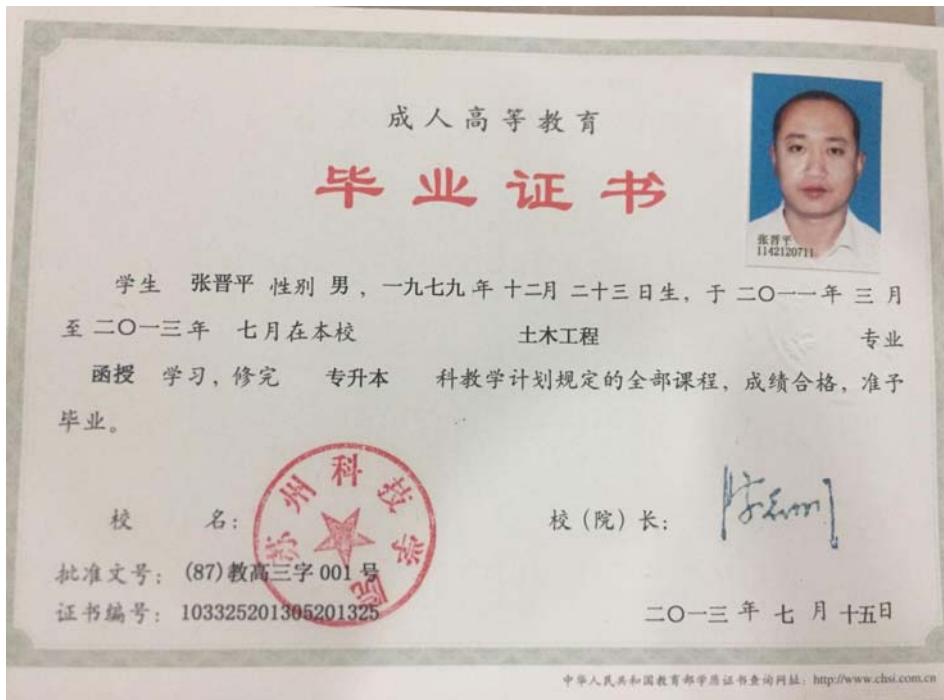 成人高等教育
毕业证书
张晋平
1142120711
学生 张晋平 性别 男，一九七九年 十二月 二十三日生，于 二〇一一年 三 月
至 二〇一三年 七月在本校 土木工程 专业
函授 学习，修完 专升本 科教学计划规定的全部课程，成绩合格，准予
毕业。
苏州科技学院
校 名：
校（院）长：
批准文号：(87)教高三字 001 号
证书编号：103325201305201325
二〇一三 年 七 月 十五日
中华人民共和国教育部学历证书查询网址：http://www.chsi.com.cn